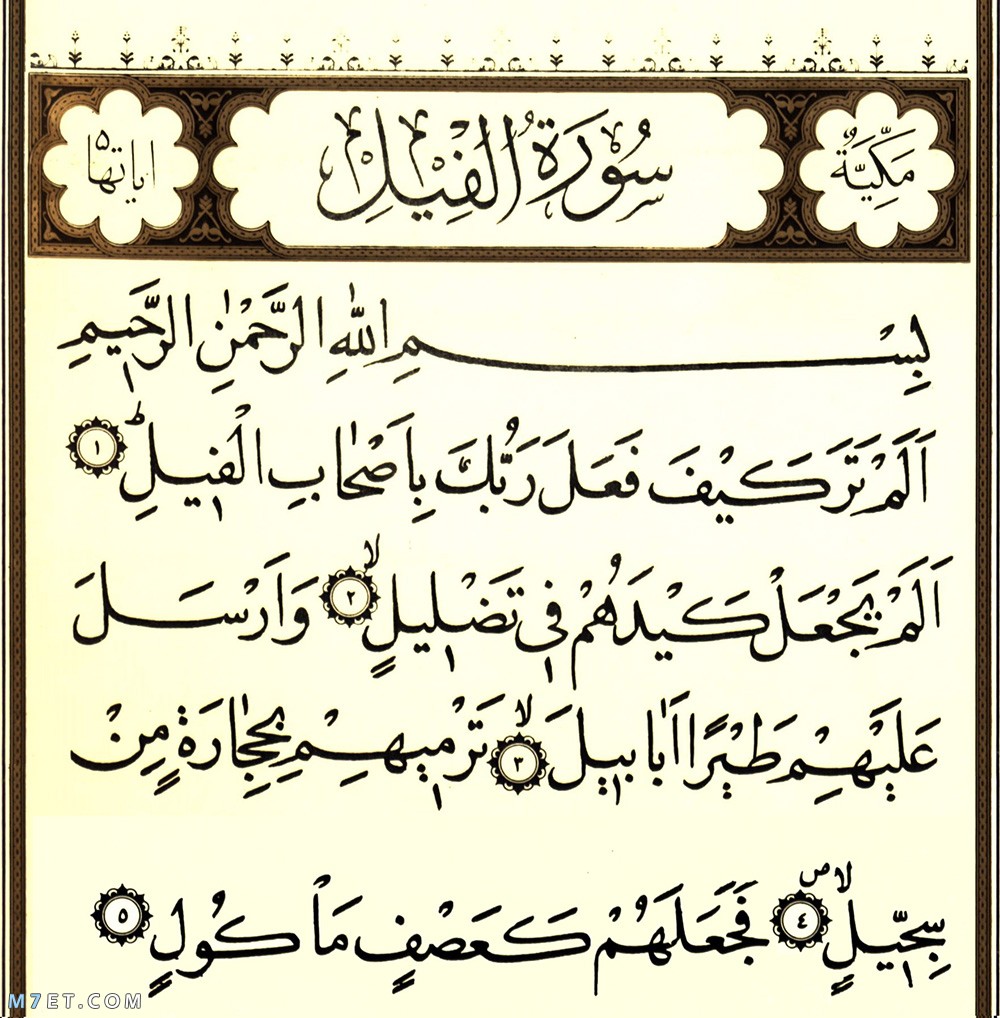 مَكِّيَّةٌ سُورَةُ الْفِيلِ اياتها ٥
بِسْمِ اللّٰهِ الرَّحْمٰنِ الرَّحِيمِ
اَلَمْ تَرَ كَيْفَ فَعَلَ رَبُّكَ بِاَصْحَابِ الْفِيلِ ط ١
اَلَمْ يَجْعَلْ كَيْدَهُمْ فِى تَضْلِيلٍ لا ٢ وَاَرْسَلَ
عَلَيْهِمْ طَيْرًا اَبَابِيلَ لا ٣ تَرْمِيهِمْ بِحِجَارَةٍ مِنْ
سِجِّيلٍ لا ص ٤ فَجَعَلَهُمْ كَعَصْفٍ مَاْكُولٍ ٥
M7ET.COM